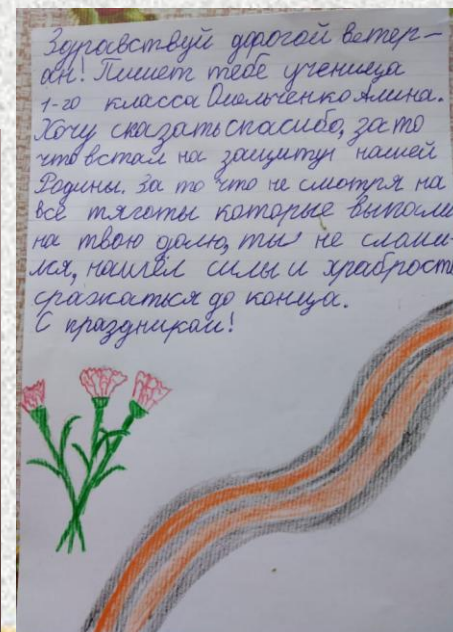 Здравствуй дорогой ветер-
ан! Пишет тебе ученица
1-го класса Омельченко Алина.
Хочу сказать спасибо, за то
что встал на защиту нашей
Родины. За то что не смотря на
все тяготы которые выпали
на твою долю, ты не сломи-
лся, нашёл силы и храбрость
сражаться до конца.
С праздником!